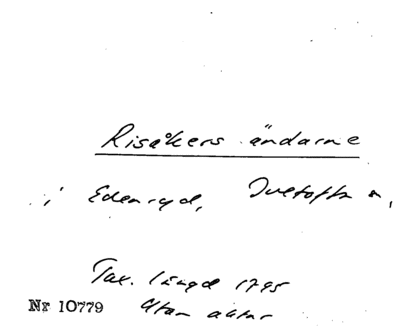 Risåkers ändarne
i Edenryd, Ivetofta s,
Tax. längd 1795
Nr 10779 Utan aktnr